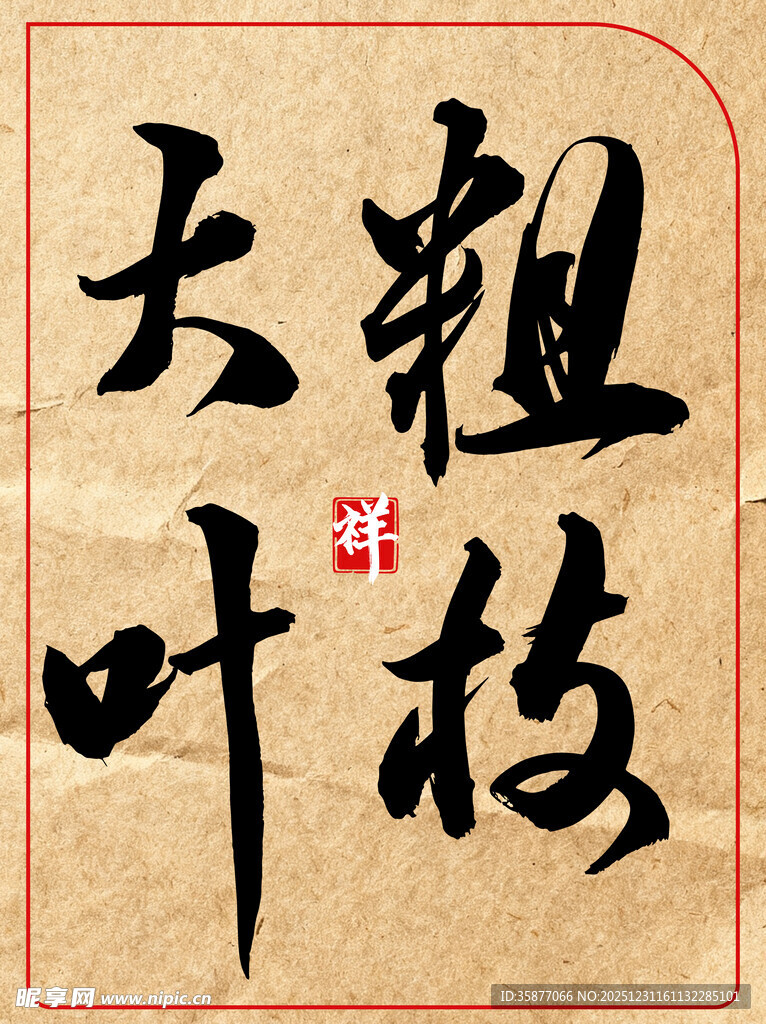 粗枝
大叶
祥
昵享网 www.nipic.cn
ID:35877066 NO:20251231161132285101